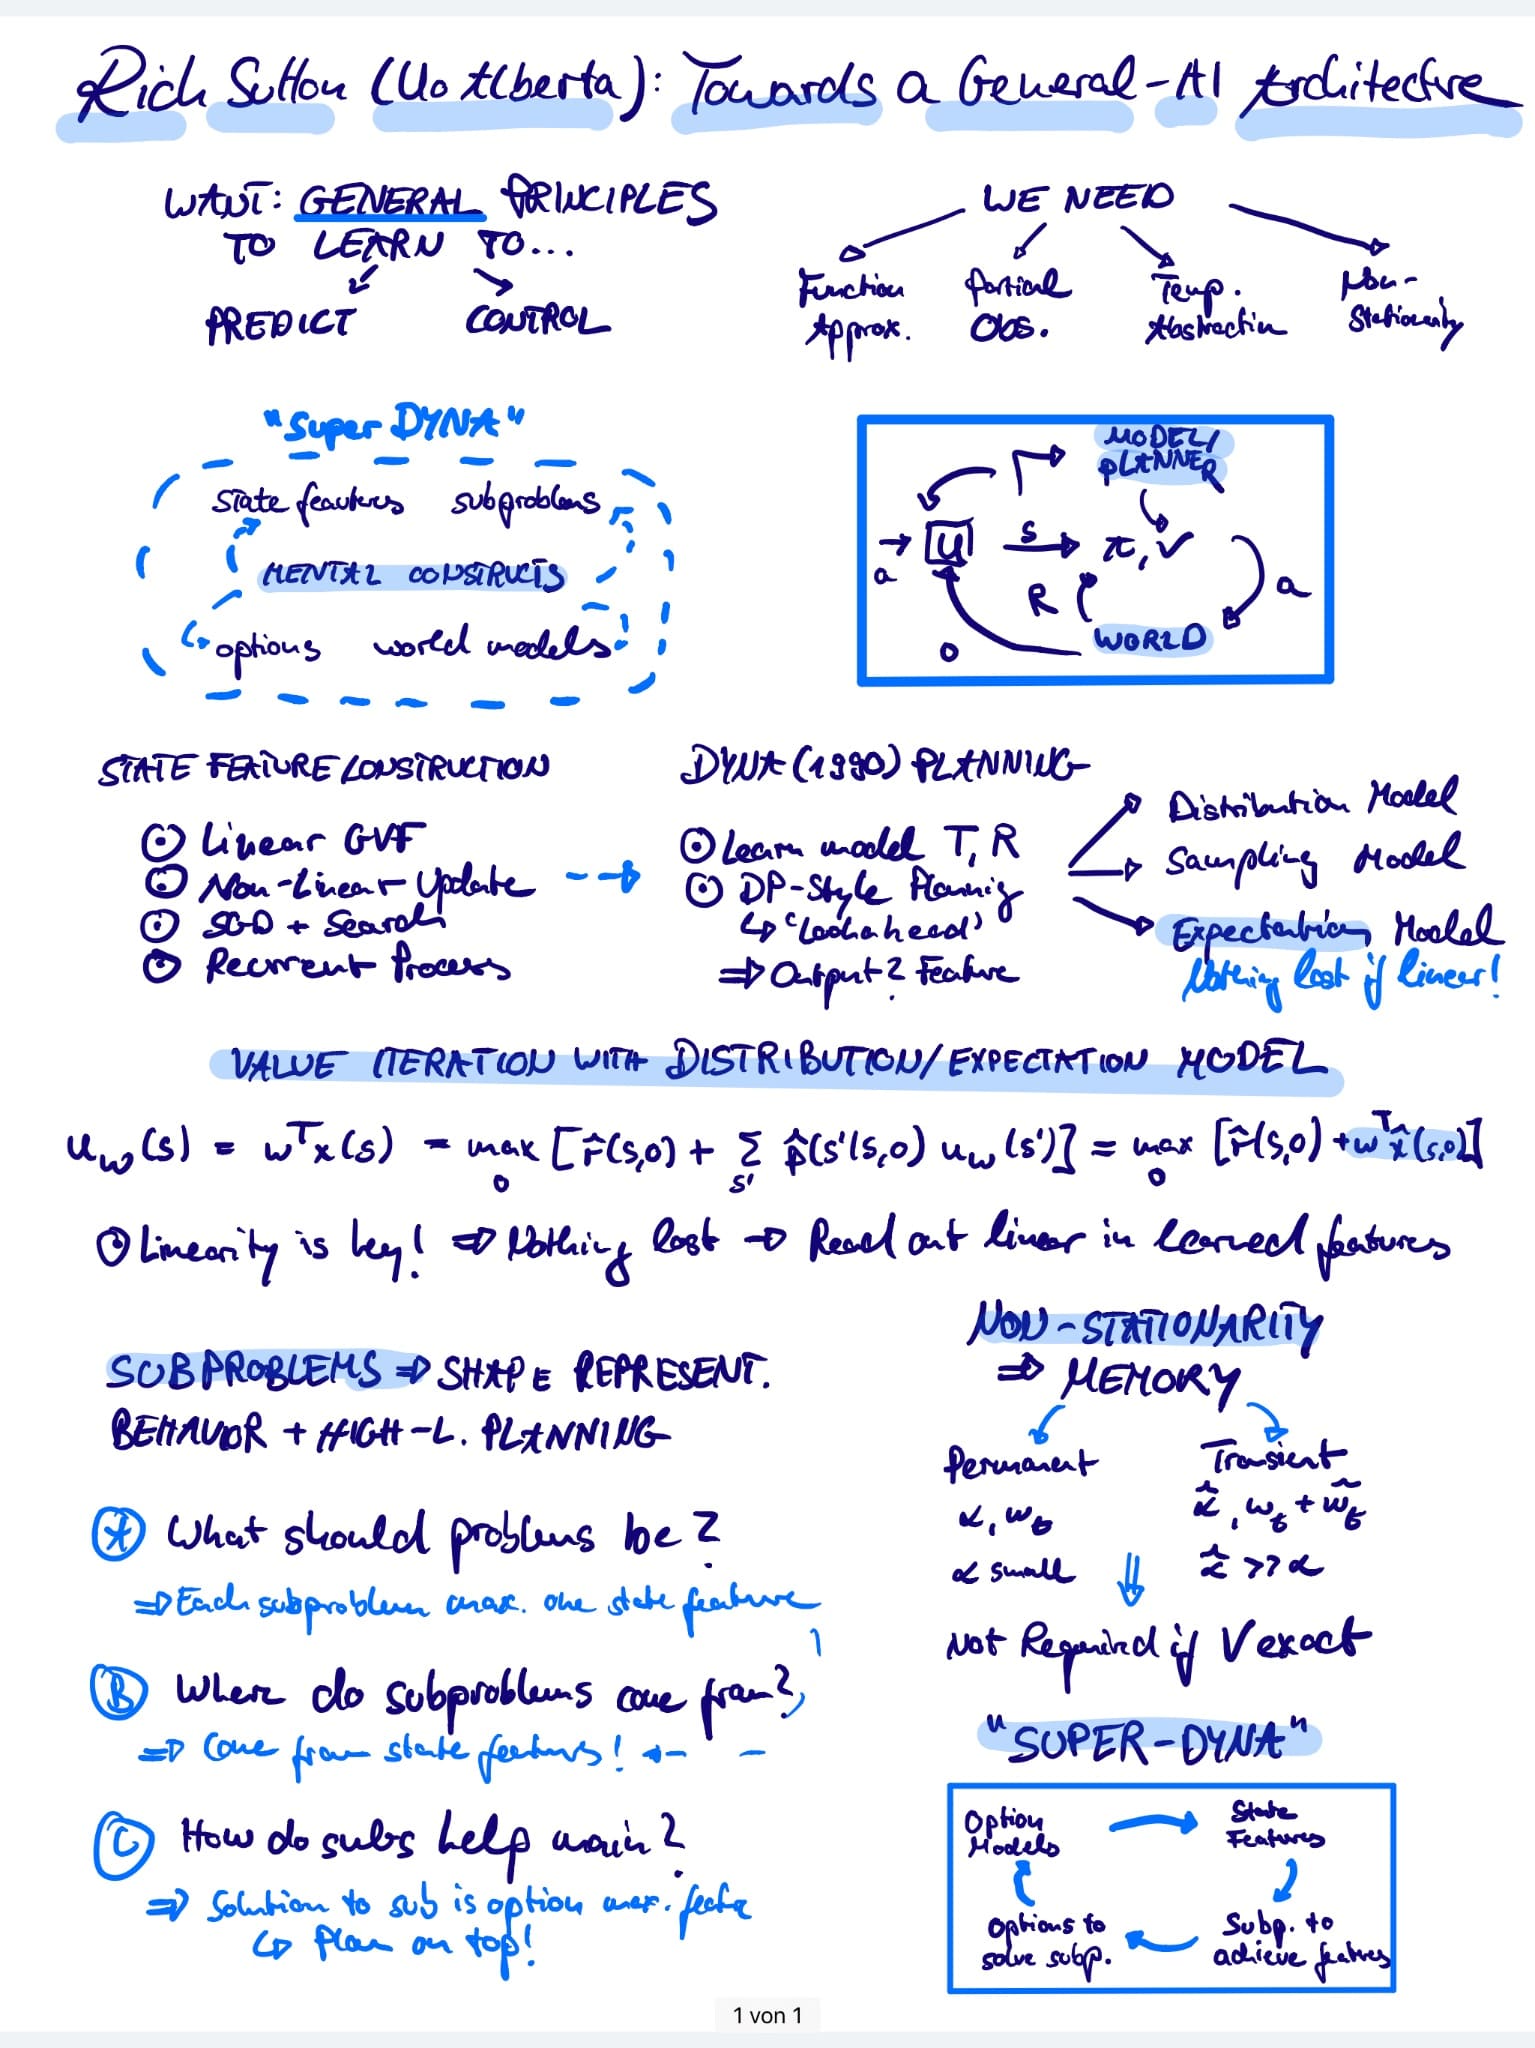 Rich Sutton (Uo Alberta): Towards a General-AI Architecture
WANT: GENERAL PRINCIPLES
TO LEARN TO...
PREDICT CONTROL
WE NEED
Function Approx.
Partial Obs.
Temp. Abstraction
Non-Stationarity
"Super DYNA"
State features subproblems
MENTAL CONSTRUCTS
options world models
MODEL/
PLANNER
→ U s → π, V
a R a
O WORLD
STATE FEATURE CONSTRUCTION
⊙ Linear GVF
⊙ Non-Linear Update
⊙ SGD + Search
⊙ Recurrent Process
DYNA (1990) PLANNING
⊙ Learn model T, R
⊙ DP-Style Planning
↳ 'Lookahead'
⇒ Output? Feature
Distribution Model
Sampling Model
Expectation Model
Nothing lost if linear!
VALUE ITERATION WITH DISTRIBUTION/EXPECTATION MODEL
u_w(s) = w^T x(s) = max_o [r̂(s,o) + Σ_s' p̂(s'|s,o) u_w(s')] = max_o [r̂(s,o) + w^T x̂(s,o)]
⊙ Linearity is key! ⇒ Nothing lost → Read out linear in learned features
SUBPROBLEMS ⇒ SHAPE REPRESENT.
BEHAVIOR + HIGH-L. PLANNING
(A) What should problems be?
⇒ Each subproblem max. one state feature
(B) Where do subproblems come from?
⇒ Come from state features!
(C) How do subs help main?
⇒ Solution to sub is option max.
↳ Plan on top!
NON-STATIONARITY
⇒ MEMORY
Permanent Transient
α, w_t α̂, w_t + ŵ_t
α small α̂ >> α
Not Required if V exact
"SUPER-DYNA"
Option Models → State Features
Options to solve subp. ← Subp. to achieve features
1 von 1